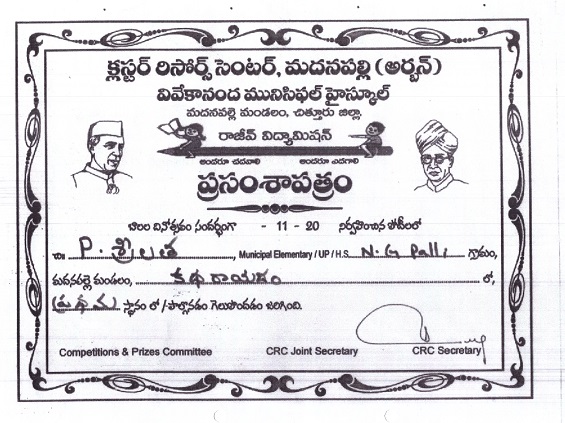 క్లస్టర్ రిసోర్స్ సెంటర్, మదనపల్లి (అర్బన్)
వివేకానంద మునిసిపల్ హైస్కూల్
మదనపల్లె మండలం, చిత్తూరు జిల్లా.
రాజీవ్ విద్యామిషన్
అందరూ చదవాలి అందరూ ఎదగాలి
ప్రశంసాపత్రం
బాలల దినోత్సవం సందర్భంగా - 11 - 20 నిర్వహించిన పోటీలలో
చి॥ P. శ్రీలత, Municipal Elementary / UP / H.S. N. G Palli గ్రామం,
మదనపల్లె మండలం, కథారాయడం లో,
(ప్రథమ) స్థానం లో / పాల్గొనడం గెలుపొందడం జరిగింది.
Competitions & Prizes Committee CRC Joint Secretary CRC Secretary